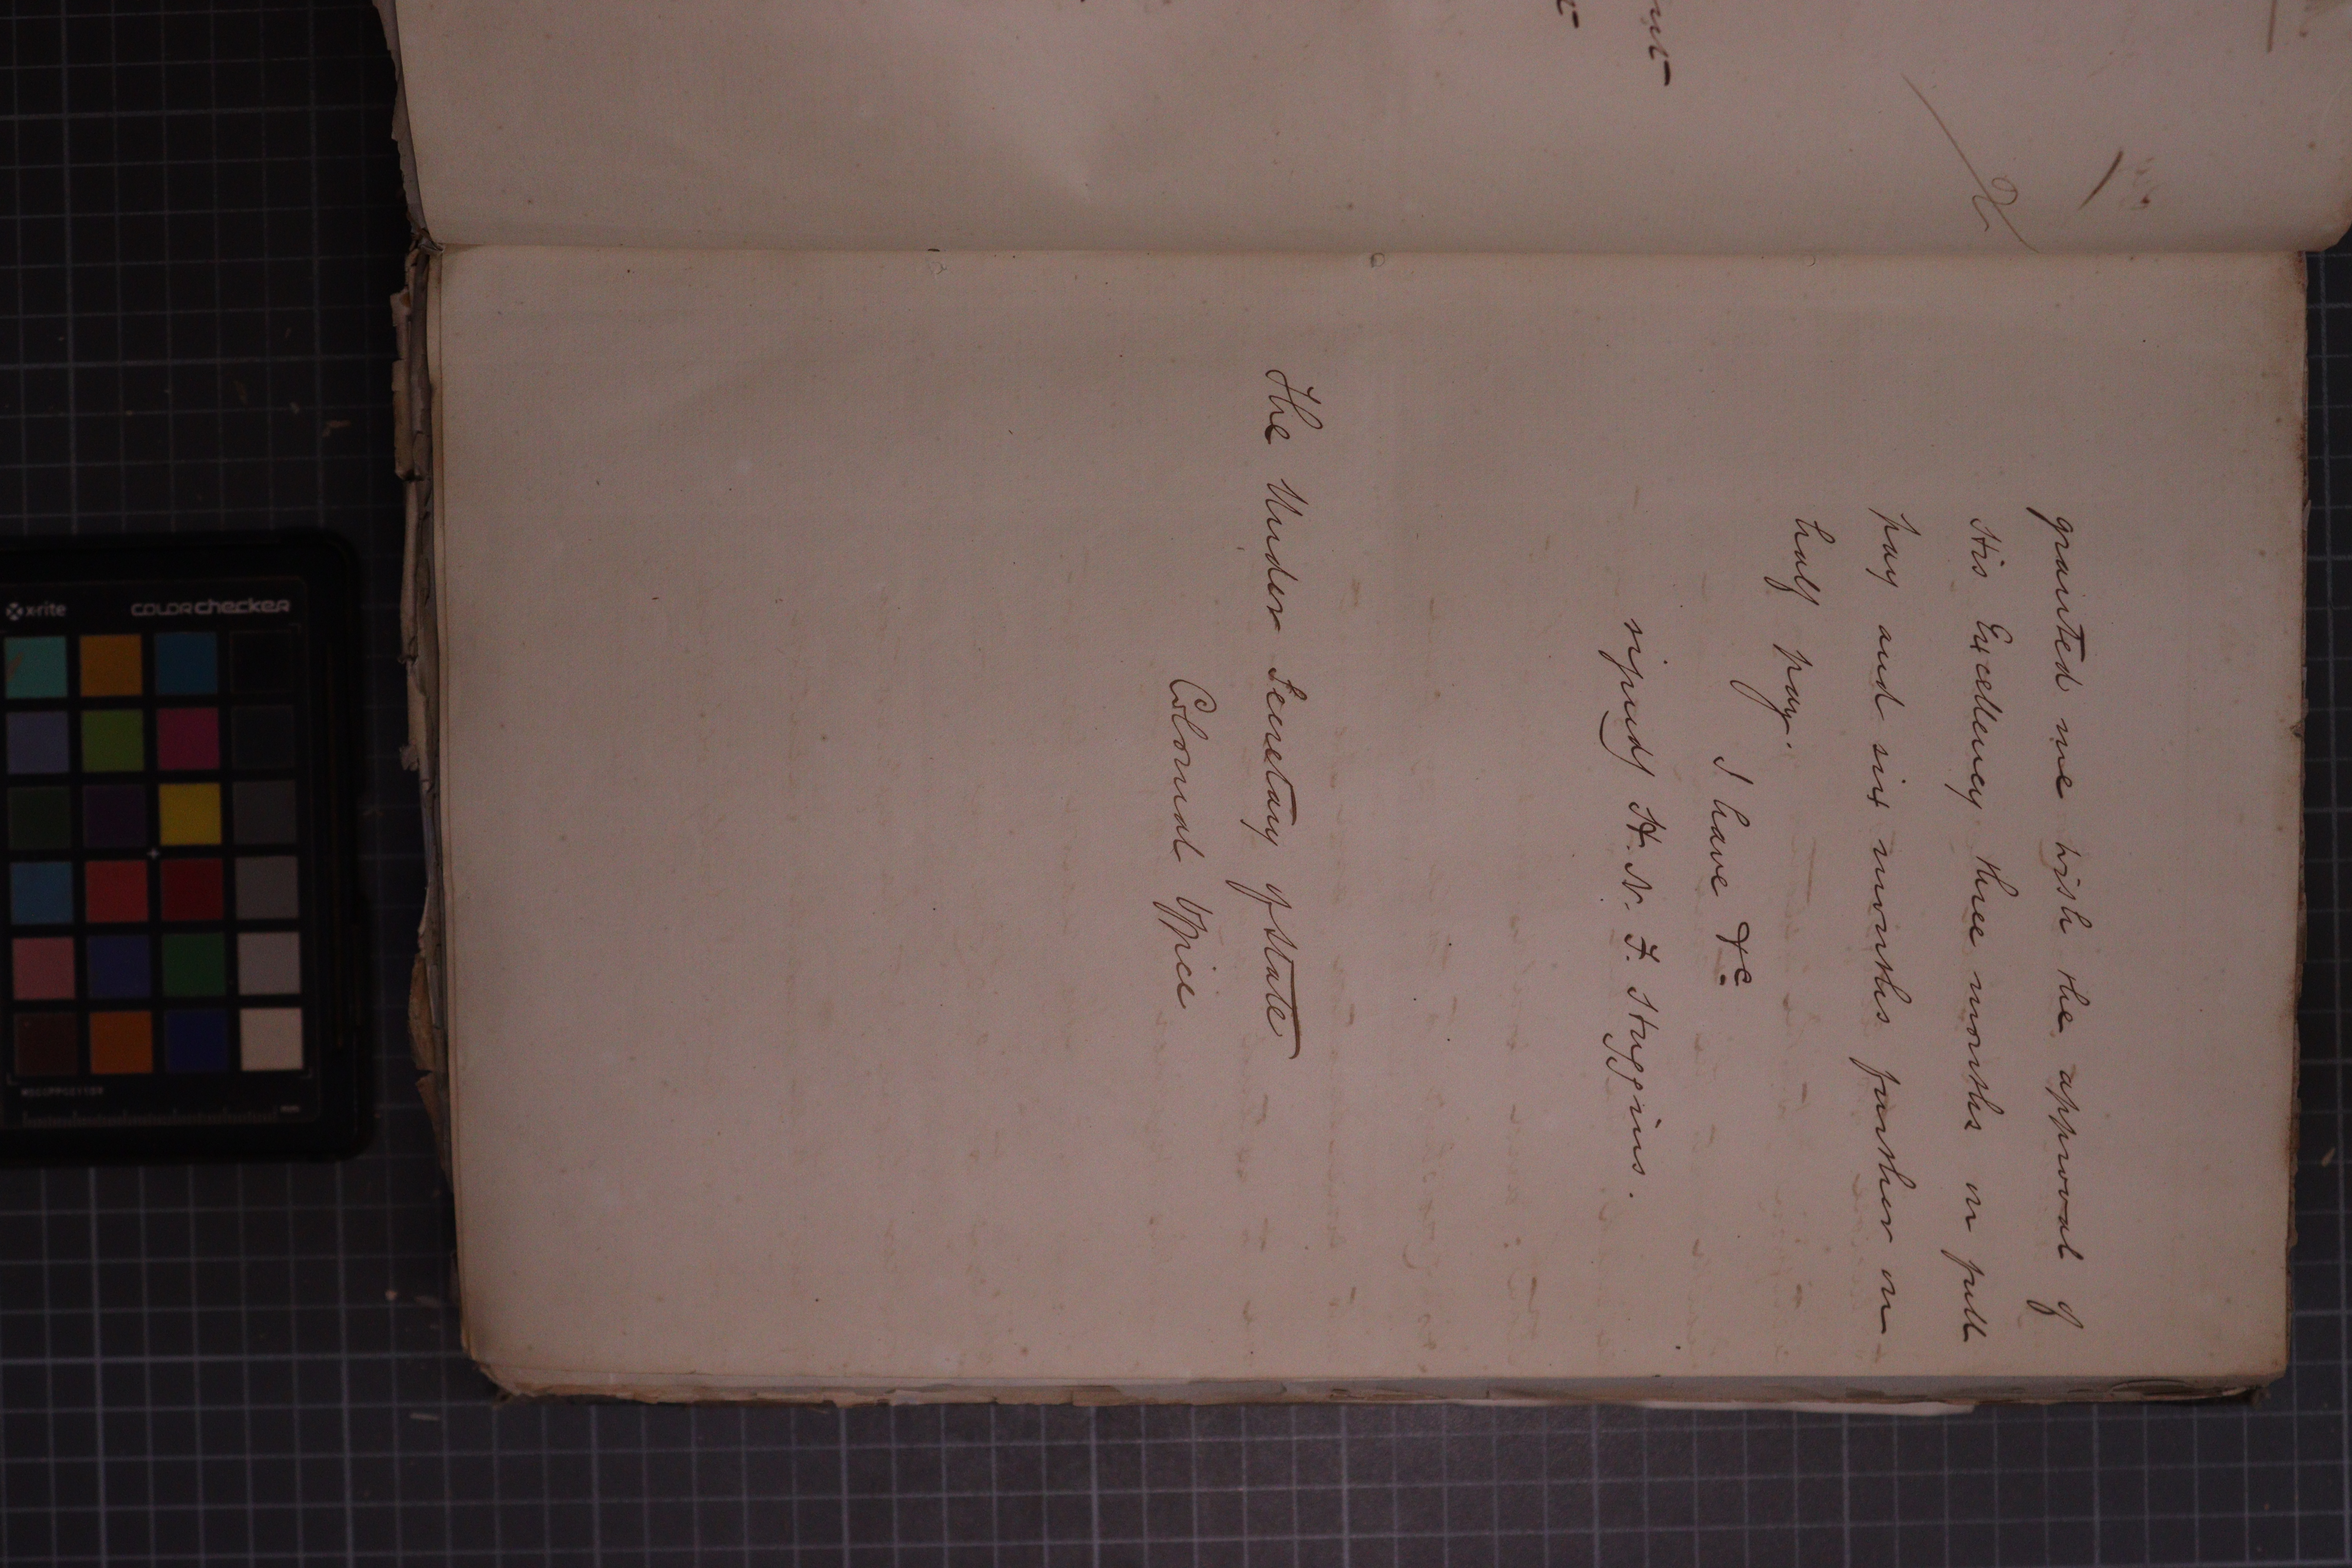 granted me with the approval of
His Excellency three months on full
pay and six months further on
half pay.
I have &c
signed H. N. F. Staggins.
The Under Secretary of State
Colonial Office
x-rite
COLORchecker